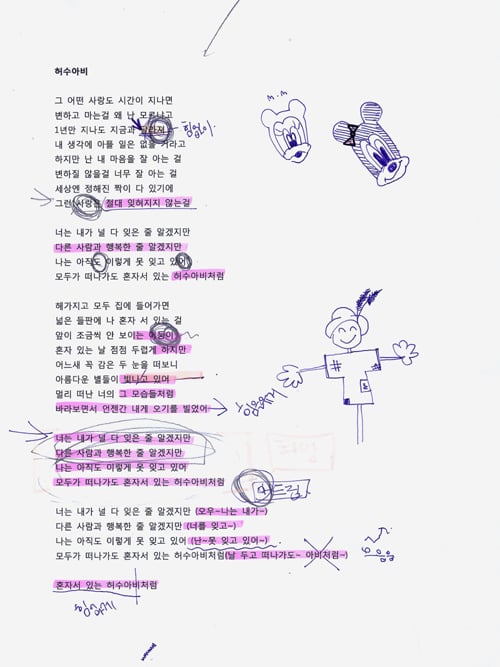 허수아비
그 어떤 사랑도 시간이 지나면
변하고 마는걸 왜 난 모르냐고
1년만 지나도 지금과 달라져 힘없이
내 생각에 아플 일은 없을 거라고
하지만 난 내 마음을 잘 아는 걸
변하질 않을걸 너무 잘 아는 걸
세상엔 정해진 짝이 다 있기에
그런 사랑은 절대 잊혀지지 않는걸
M.M
너는 내가 널 다 잊은 줄 알겠지만
다른 사람과 행복한 줄 알겠지만
나는 아직도 이렇게 못 잊고 있어
모두가 떠나가도 혼자서 있는 허수아비처럼
해가지고 모두 집에 들어가면
넓은 들판에 나 혼자 서 있는 걸
앞이 조금씩 안 보이는 어둠이
혼자 있는 날 점점 두렵게 하지만
어느새 꼭 감은 두 눈을 떠보니
아름다운 별들이 빛나고 있어
멀리 떠난 너의 그 모습들처럼
바라보면서 언젠간 내게 오기를 빌었어
너는 내가 널 다 잊은 줄 알겠지만
다른 사람과 행복한 줄 알겠지만
나는 아직도 이렇게 못 잊고 있어
모두가 떠나가도 혼자서 있는 허수아비처럼
너는 내가 널 다 잊은 줄 알겠지만 (모우~나는 내가~)
다른 사람과 행복한 줄 알겠지만 (너를 잊고~)
나는 아직도 이렇게 못 잊고 있어 (난~못 잊고 있어~)
모두가 떠나가도 혼자서 있는 허수아비처럼(날 두고 떠나가도~ 아비처럼~)
혼자서 있는 허수아비처럼